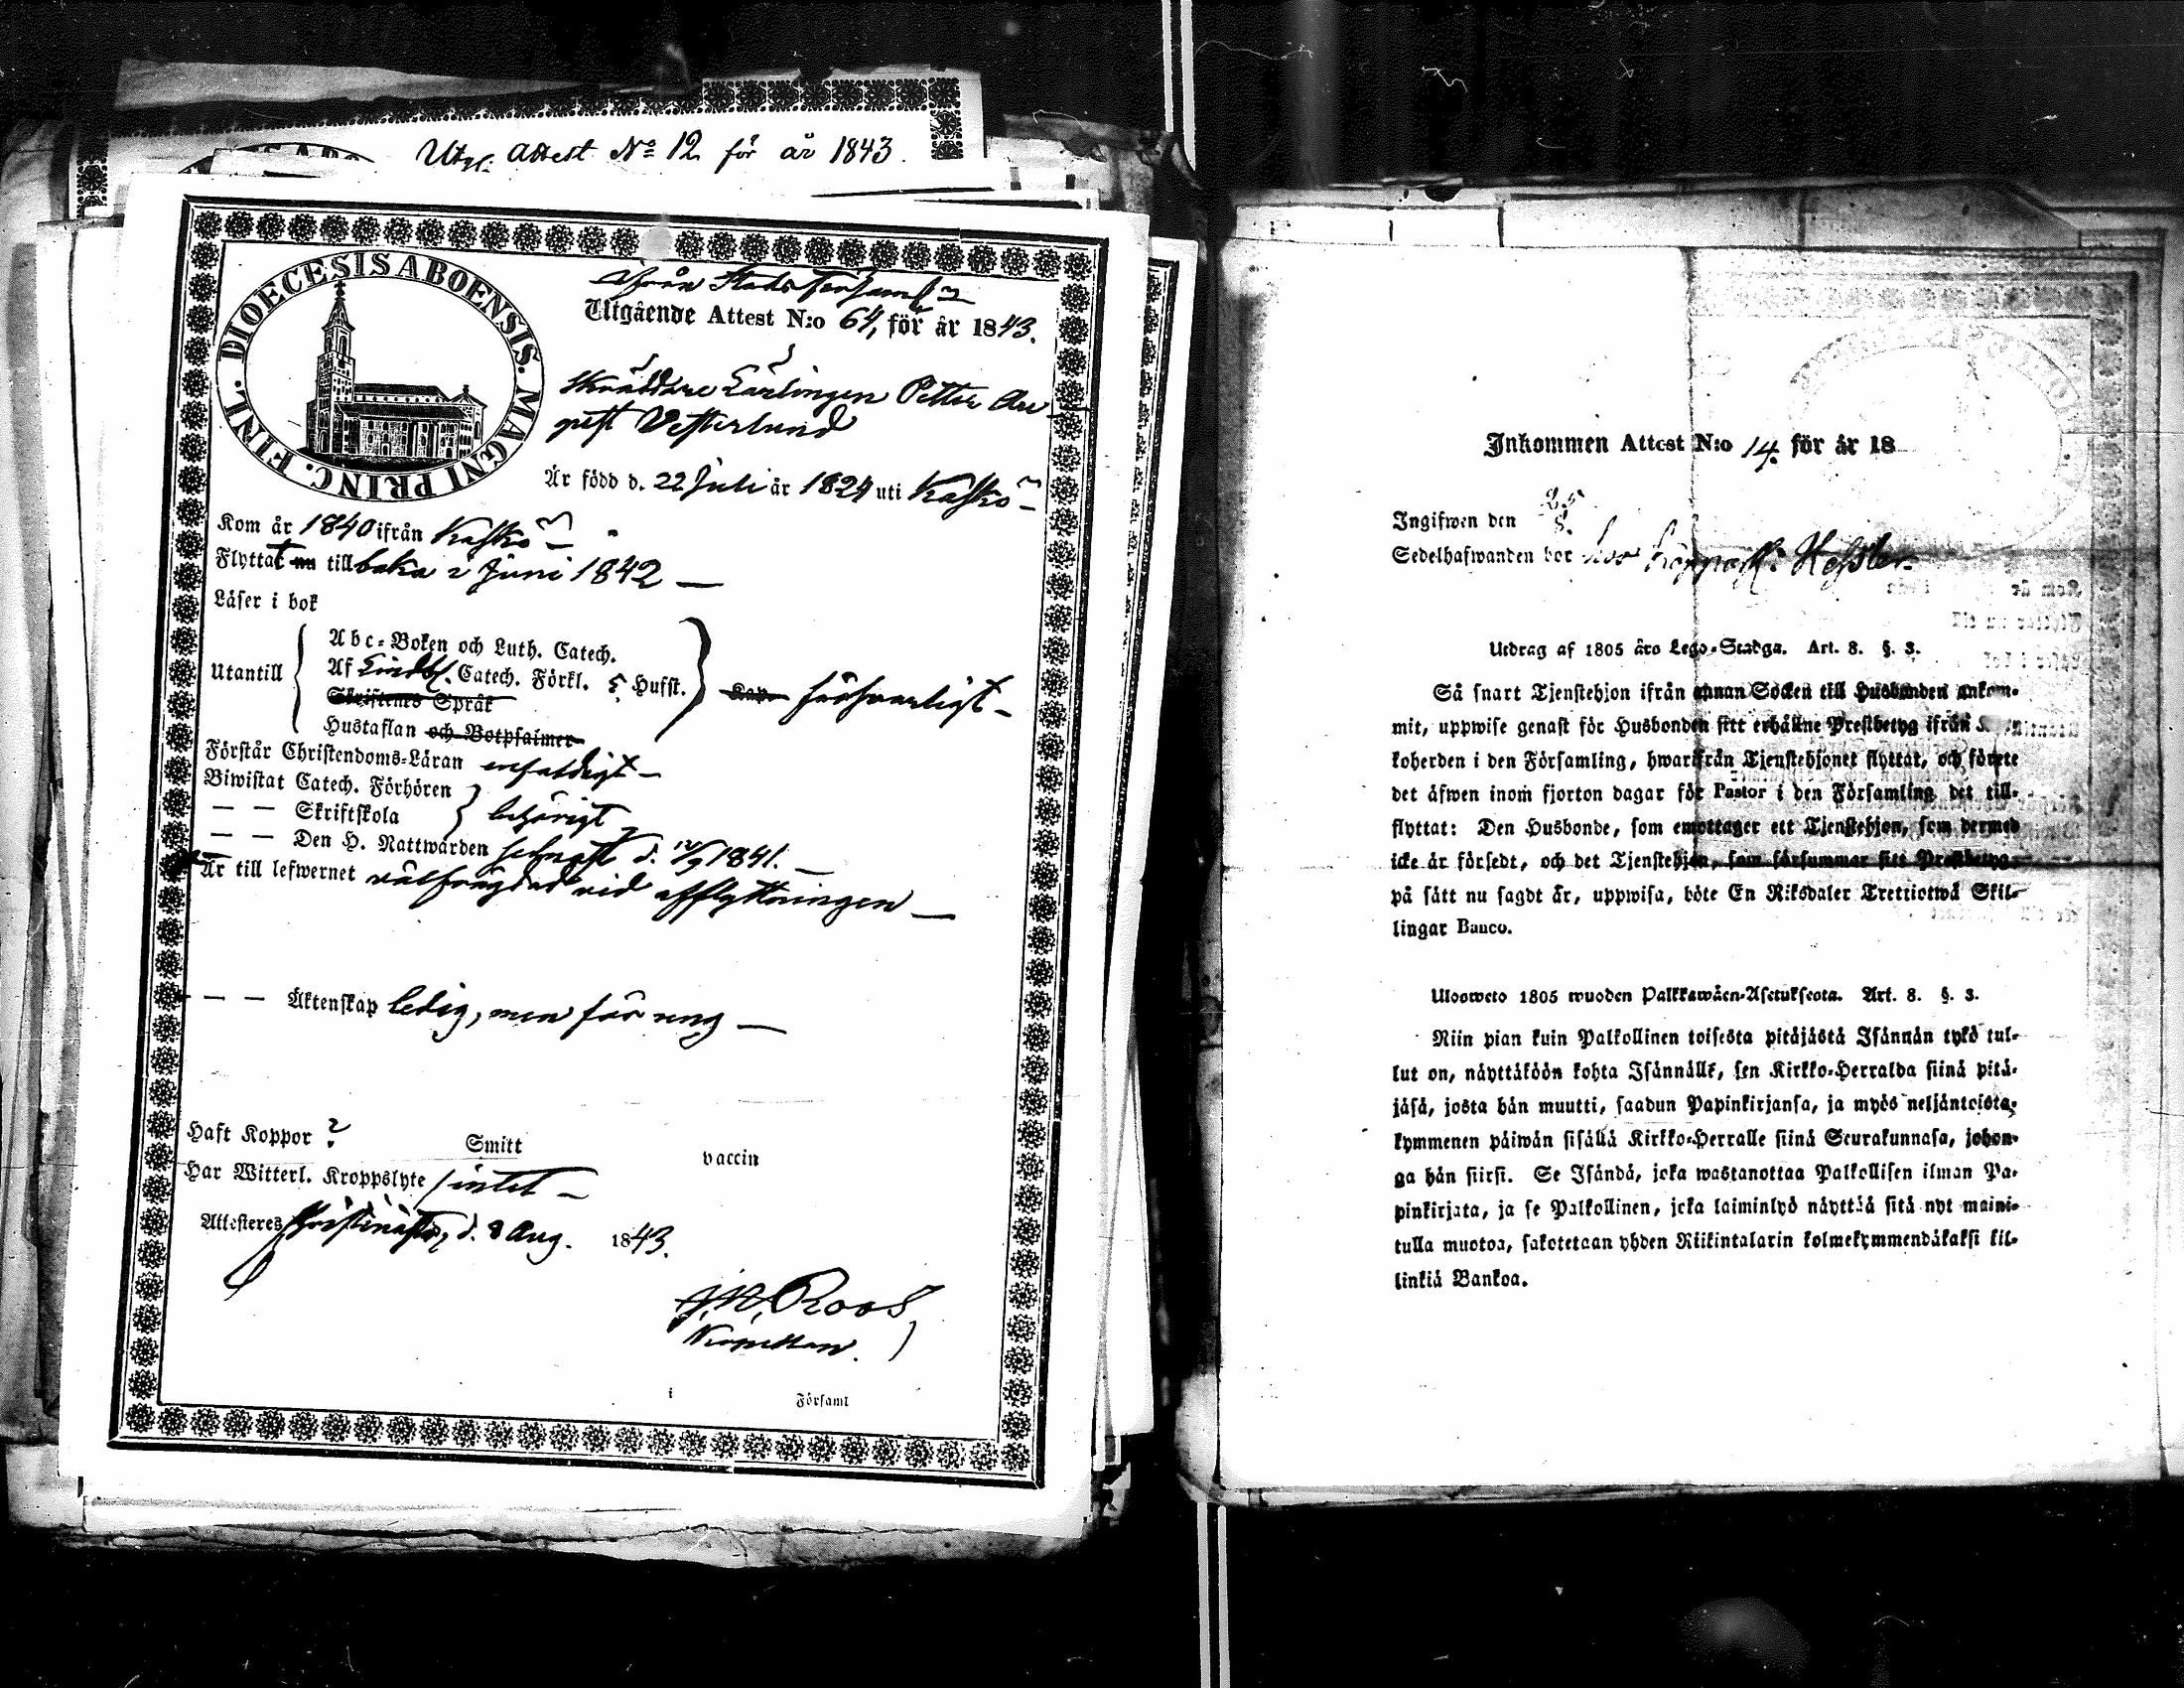 Utg: Attest No 12 för år 1843.
DIOECESIS ABOENSIS. MAGNI PRINC. FINL.
ifrån Stads Församl
Utgående Attest N:o 64, för år 1843.
Skräddare Lärlingen Petter Au-
gust Vesterlund
Är född d. 22 Juli år 1824 uti Kaskö
Kom år 1840 ifrån Kaskö
Flyttat nu till baka 2 Juni 1842
Läser i bok
Utantill
Abc-Boken och Luth. Catech.
Af Lindbl. Catech. Förkl. Husst.
Skriftenes Språk
Hustaflan och Botpsalmer
Kap försvarligt
Förstår Christendoms-Läran enfaldigt
Biwistat Catech. Förhören
— — Skriftskola
behörigt
— — Den H. Nattwarden senast d. 12/9 1841.
Är till lefwernet välfrägdad vid afflyttningen
— — Äktenskap ledig, men för ung
Haft Koppor ? Smitt vaccin
Har Witterl. Kroppslyte intet
Attesteres Christinestad, d. 8 Aug. 1843.
Roos
Kapellan.
i Församl
Inkommen Attest N:o 14. för år 18
Ingifwen den 25/8.
Sedelhafwanden bor hos Hessler
Utdrag af 1805 års Lego-Stadga. Art. 8. §. 3.
Så snart Tjenstehjon ifrån annan Socken till Husbonden ankom-
mit, uppwise genast för Husbonden sitt erhållne Prestbetyg ifrån
koherden i den Församling, hwarifrån Tjenstehjonet flyttat, och förete
det äfwen inom fjorton dagar för Pastor i den Församling det till-
flyttat: Den Husbonde, som emottager ett Tjenstehjon, som dermed
icke är försedt, och det Tjenstehjon, som försummar sitt Prestbetyg
på sätt nu sagdt är, uppwisa, böte En Riksdaler Trettiotwå Skil-
lingar Banco.
Ulosweto 1805 wuoden Palkkawäen-Asetuksesta. Art. 8. §. 3.
Niin pian kuin Palkollinen toisesta pitäjästä Isännän tykö tul-
lut on, näyttäköön kohta Isännälle, sen Kirkko-Herralda siinä pitä-
jäsä, josta hän muutti, saadun Papinkirjansa, ja myös neljäntoista-
kymmenen päiwän sisällä Kirkko-Herralle siinä Seurakunnasa, johon-
ga hän siirsi. Se Isändä, joka wastanottaa Palkollisen ilman Pa-
pinkirjata, ja se Palkollinen, joka laiminlyö näyttää sitä nyt maini-
tulla muotoa, sakotetaan yhden Riikintalarin kolmekymmendäkaksi kil-
linkiä Bankoa.